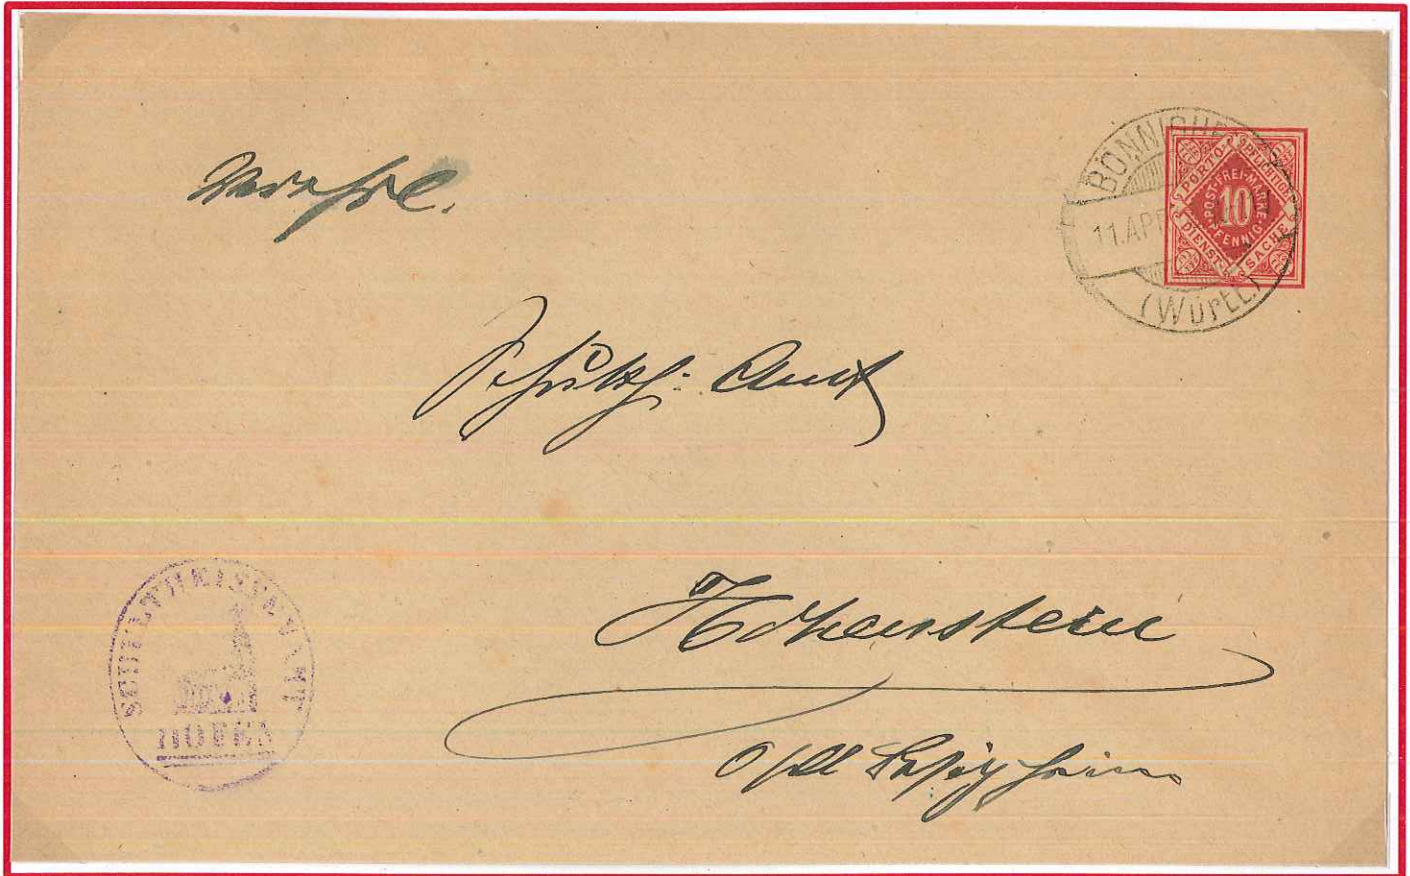 BÖNNIGHE
11.APR
(Württ.)
PORTO-PFLICHTIGE
DIENST-SACHE
POST-FREI-MARKE
10
PFENNIG
Schulth: Amt
Hohenstein
SCHULTHEISSENAMT
HOFEN